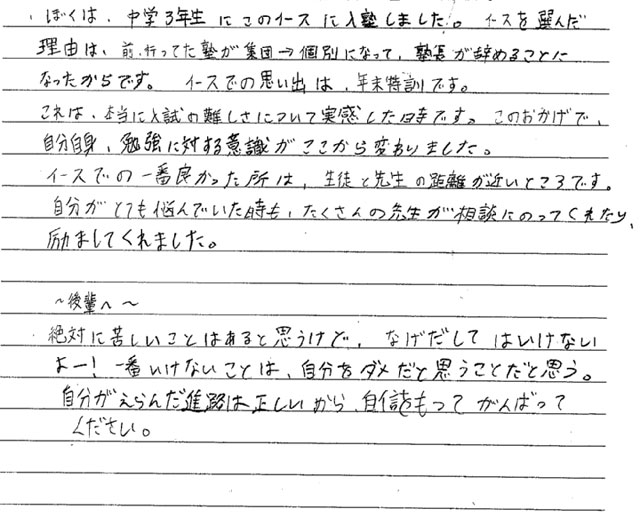 ぼくは、中学3年生にこのイースに入塾しました。イースを選んだ
理由は、前、行ってた塾が集団→個別になって、塾長が辞めることに
なったからです。イースでの思い出は、年末特訓です。
これは、本当に入試の難しさについて実感した時です。このおかげで、
自分自身、勉強に対する意識がここから変わりました。
イースでの一番良かった所は、生徒と先生の距離が近いところです。
自分がとても悩んでいた時も、たくさんの先生が相談にのってくれたり、
励ましてくれました。
～後輩へ～
絶対に苦しいことはあると思うけど、なげだしてはいけない
よー!一番いけないことは、自分をダメだと思うことだと思う。
自分がえらんだ進路は正しいから、自信をもってがんばって
ください。